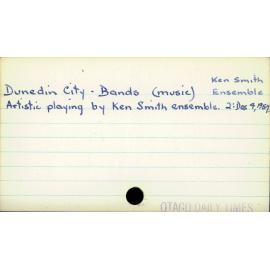 Ken Smith
Dunedin City - Bands (music) Ensemble
Artistic playing by Ken Smith ensemble. 2: Dec 9, 1989
OTAGO DAILY TIMES